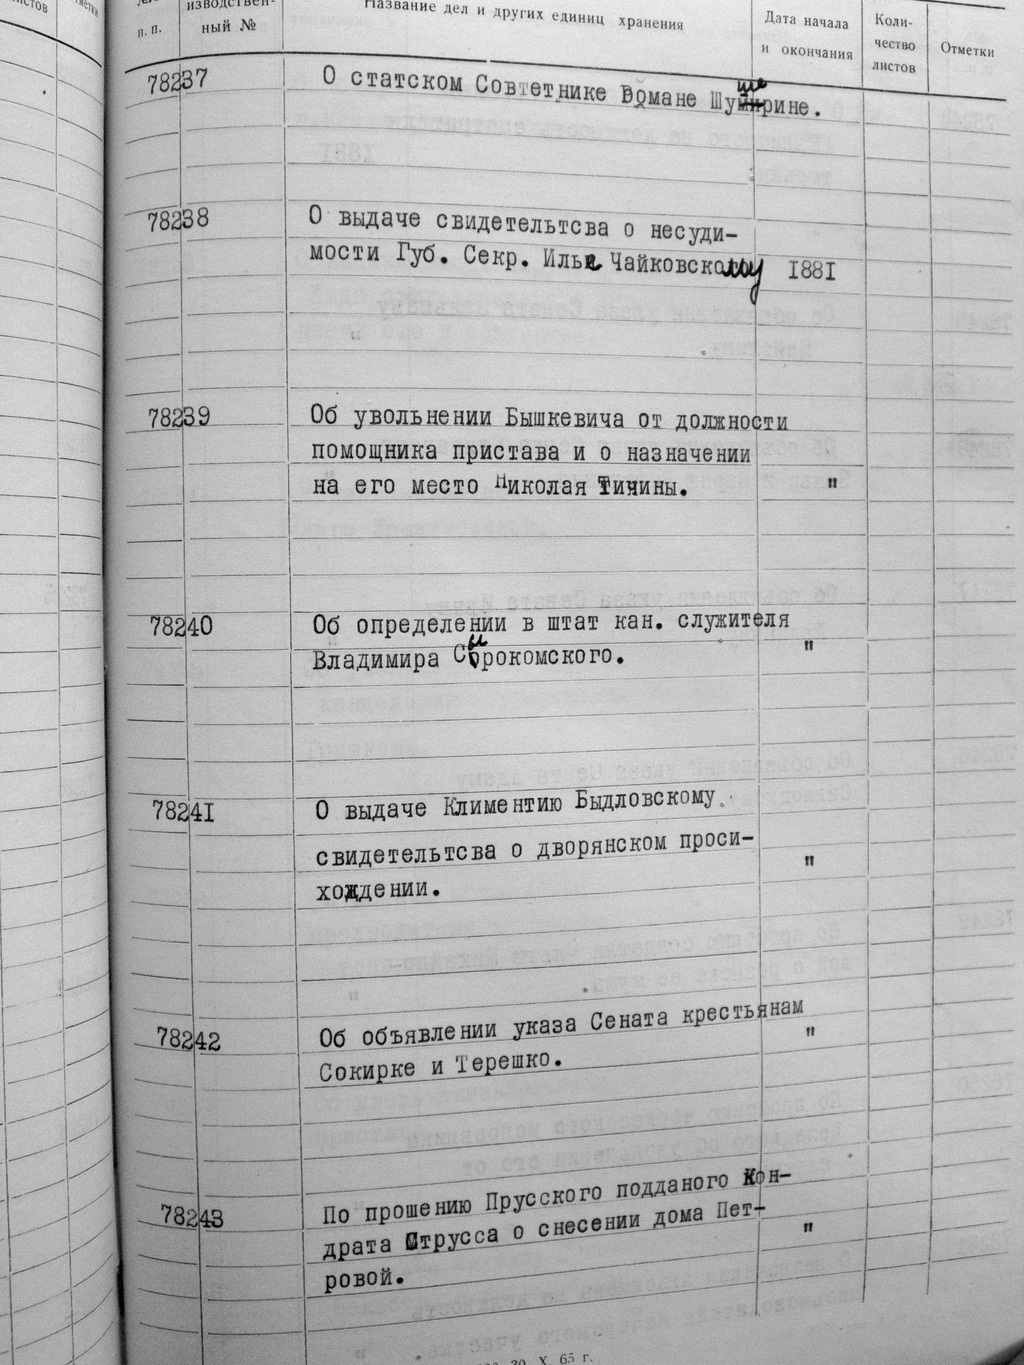 п. п.
изводствен-
ный №
Название дел и других единиц хранения
Дата начала
и окончания
Коли-
чество
листов
Отметки
78237 О статском Совтетнике Вомане Шуширине.
78238 О выдаче свидетельтсва о несуди-
мости Губ. Секр. Илье Чайковскому 1881
78239 Об увольнении Бышкевича от должности
помощника пристава и о назначении
на его место Николая Тичины. "
78240 Об определении в штат кан. служителя
Владимира Сырокомского. "
78241 О выдаче Климентию Быдловскому
свидетельтсва о дворянском проси-
хождении. "
78242 Об объявлении указа Сената крестьянам
Сокирке и Терешко. "
78243 По прошению Прусского подданого Кон-
драта Струсса о снесении дома Пет-
ровой. "
20. X. 65 г.